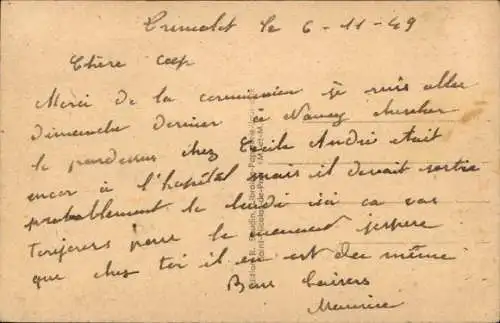 le 6-11-49
Chère
Merci de la commission je suis aller
dimanche dernier a Nancy chercher
le pardessus chez Cecile André était
encor à l'hopital mais il devait sortir
probablement le lundi ici ca vas
toujours pour le moment j'espere
que chez toi il en est de même
Bons baisers
Maurice